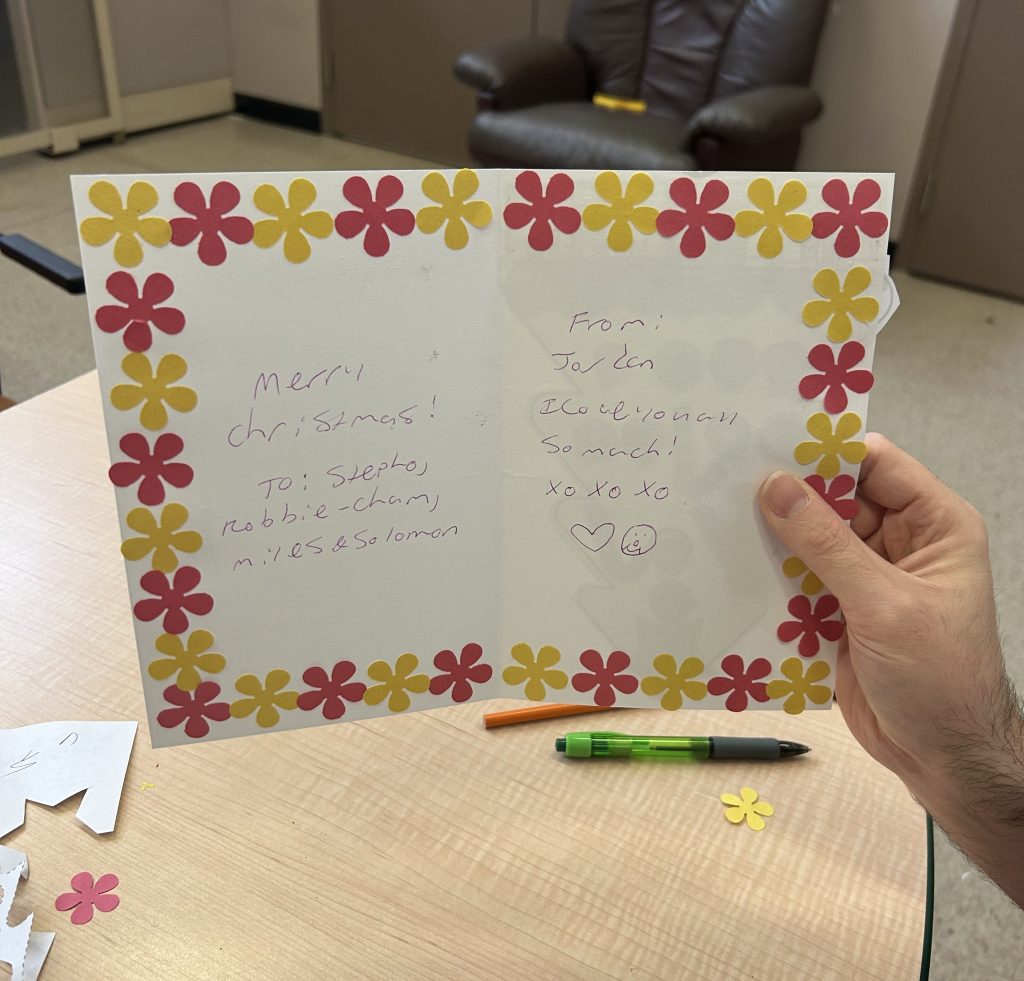 Merry
christmas!
To: Stepho,
Robbie-cham,
miles & Solomon
From:
Jordan
I Love you all
So much!
xo xo xo